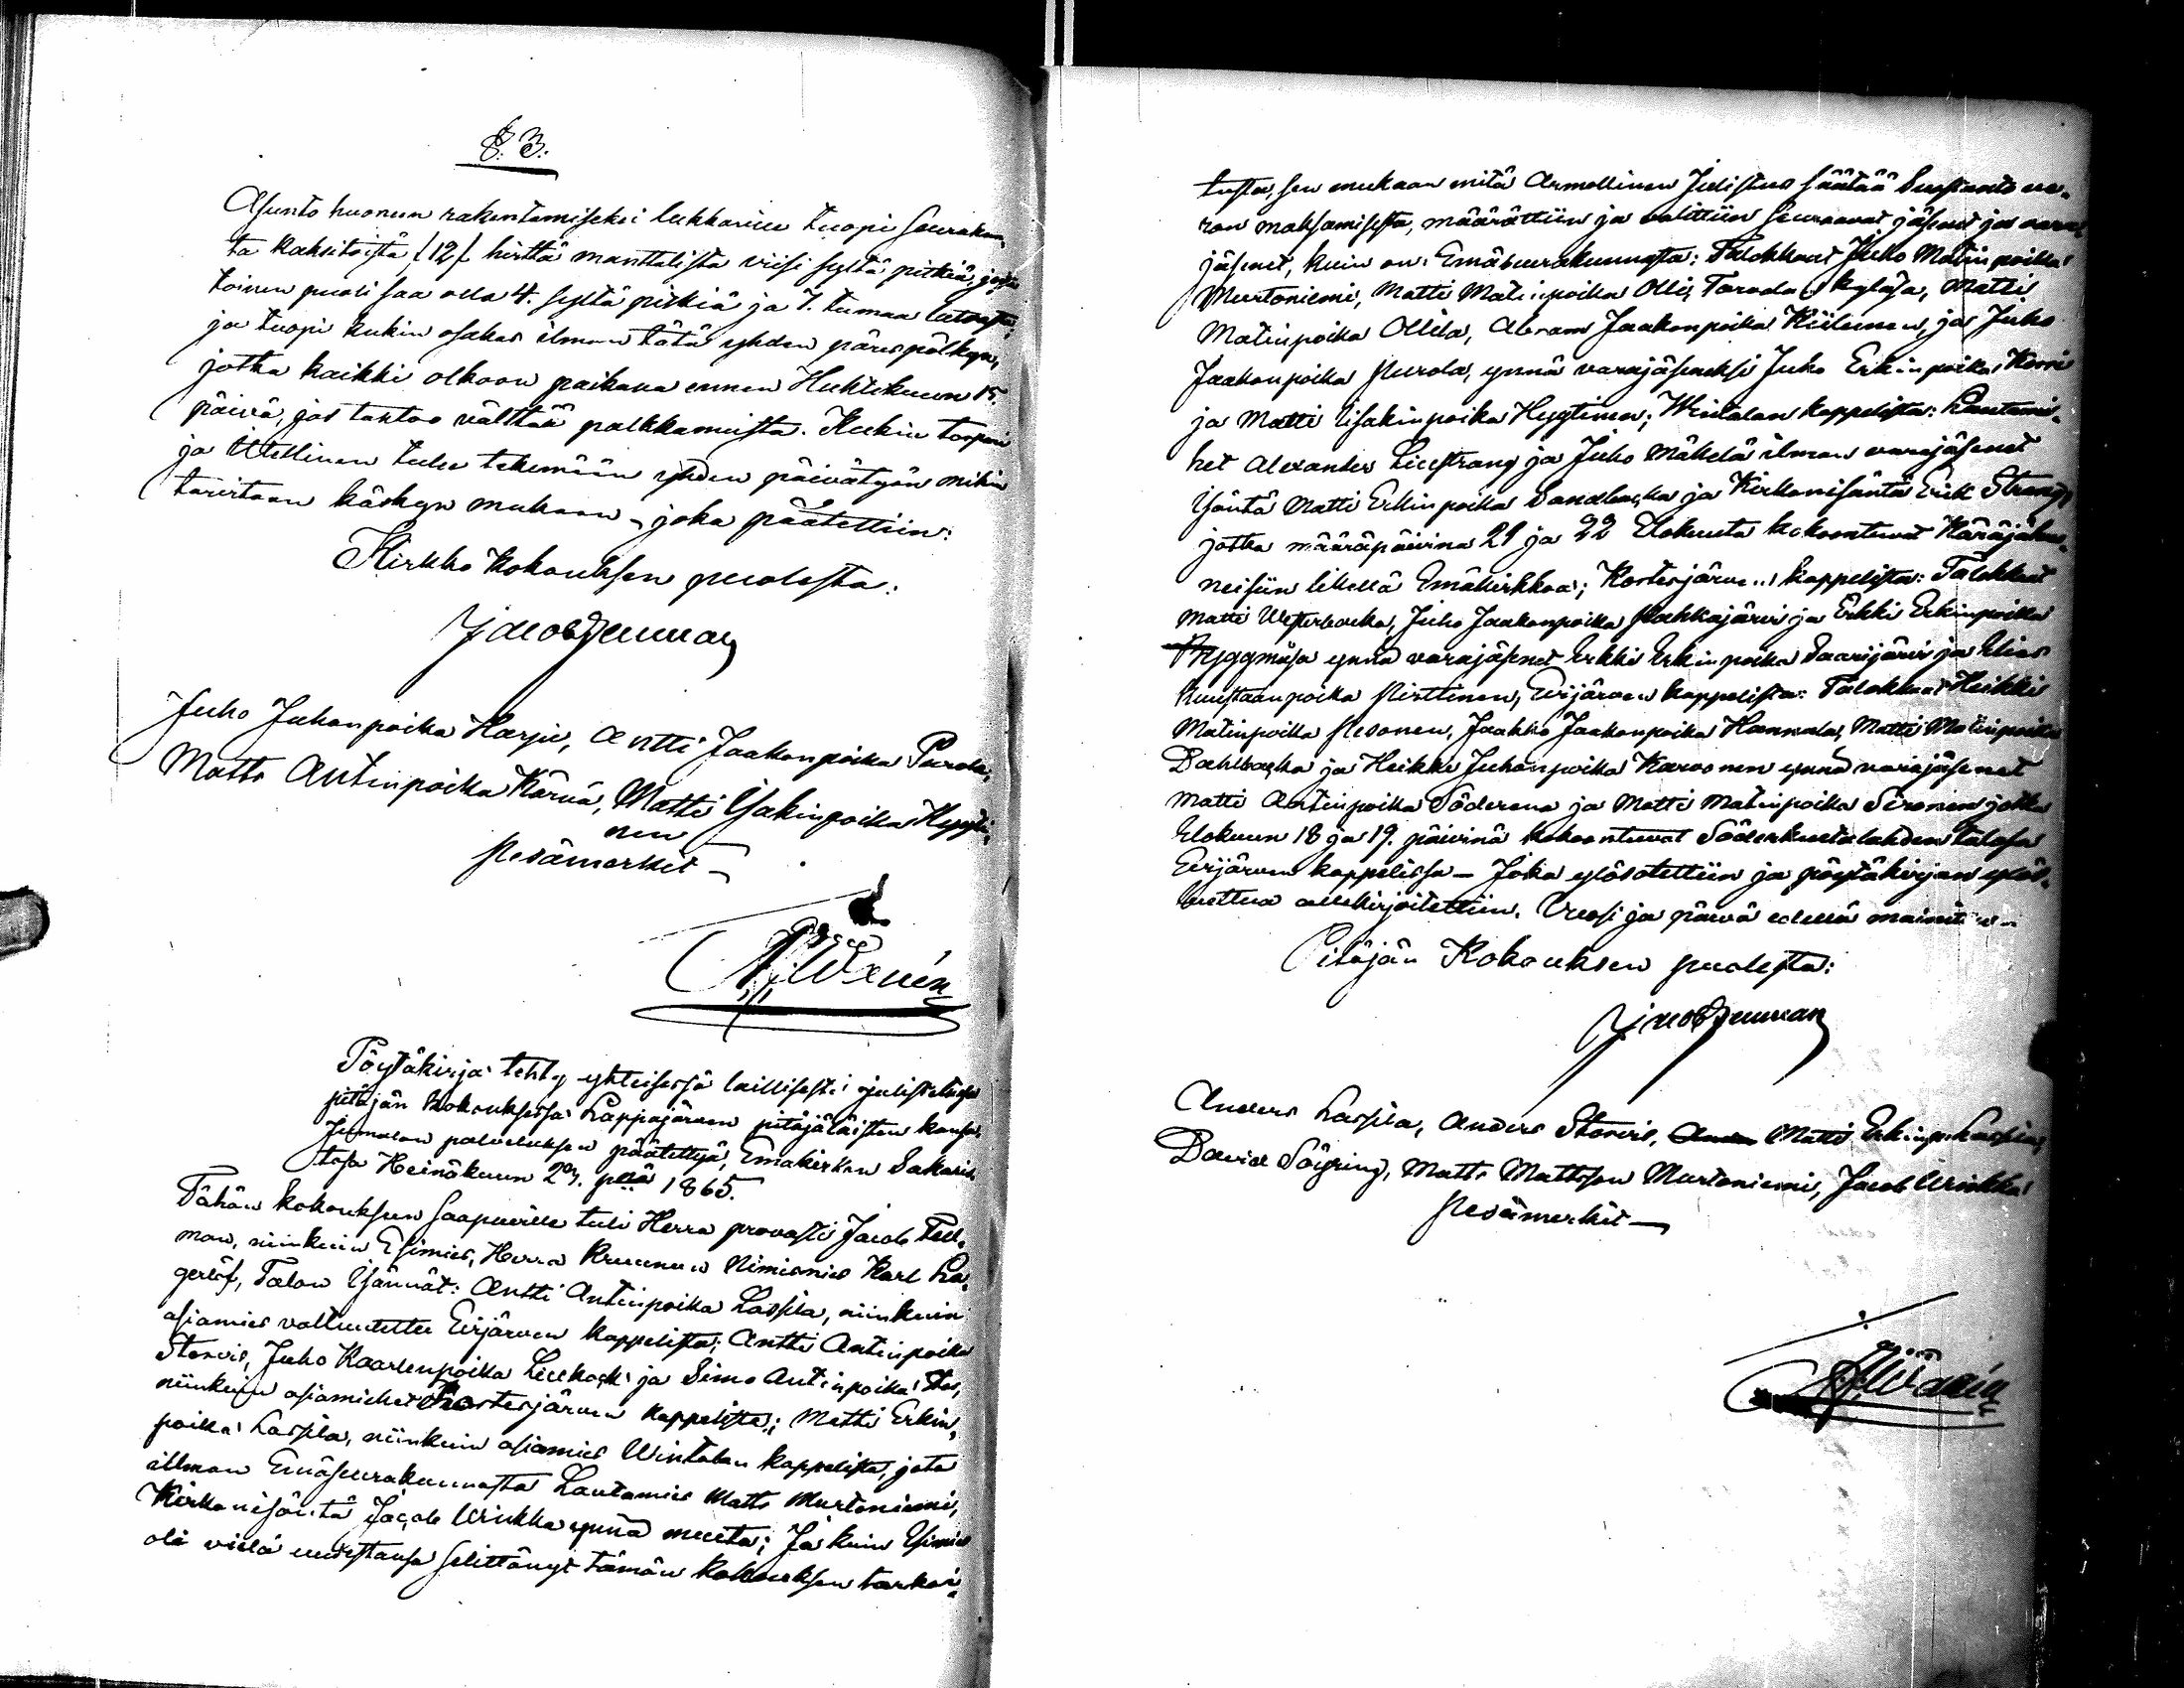 §: 3:
Asunto huoneen rakentamiseksi lukkarille tuopi Seurakun-
ta kaksitoista /12/ hirttä manttalista viisi syltä pitkiä, josta
toinen puoli saa olla 4. syltä pitkiä ja 7. tumaa latvasta;
ja tuopi kukin osakas ilman tätä yhden päres pölkyn,
jotka kaikki olkoon paikana ennen Huhtikuun 15.
päivä, jos tahtoo välttää palkkamista. Kukin torpari
ja Itellinen tulee tekemään yhden päivätyön mihin
tarvitaan käskyn mukaan, joka päätettiin:
Kirkko Kokouksen puolesta:
Jacob Fellman
Juho Juhonpoika Harju, Antti Jaakonpoika Purola,
Matts Antinpoika Kärnä, Matti Isakinpoika Hyyti-
nen
Puumerkit
Pöytäkirja tehty yhteisessä laillisesti julistetussa
pitäjän kokouksessa Lappajärven pitäjäläisten kanssa,
Jumalan palveluksen päätettyä, Emäkirkon Sakaris-
tosa Heinäkuun 23. pnä 1865.
Tähän kokouksen saapuville tuli Herra provasti Jacob Fell-
man, niinkuin Esimies, Herra Kruunun Nimismies Karl La-
gerlöf, Talon Isännät: Antti Antinpoika Lassila, niinkuin
asiamies valtuutettu Evijärven kappelista; Antti Antinpoika
Storvis, Juho Kaarlenpoika Lillback ja Simo Antinpoika
niinkuin asiamiehet Kortesjärven kappelista; Matti Erkin-
poika Lassila, niinkuin asiamies Wintalan kappelista, jota
illman Emäseurakunnasta Lautamies Matts Murtoniemi,
Kirkonisäntä Jacob Wirkkala ynnä muita; Ja kuin Esimies
oli vielä uudestansa selittänyt tämän kokouksen tarkoi-
tusta, sen mukaan mitä Armollinen Julistus säätää Suostunto ve-
ron maksamisesta, määrättiin ja valittiin seuraavat jäsenet ja vara-
jäsenet, kuin on: Emäseurakunnasta: Talokkaat Juho Matinpoika
Murtoniemi, Matti Matinpoika Olli, kylässä, Matti
Matinpoika Ollila, Abram Jaakonpoika Kiilunen, ja Juho
Jaakonpoika Purola, ynnä varajäseneksi Juho Erkinpoika
ja Matti Isakinpoika Hyytinen; Wintalan kappelista: Lautami-
het Alexander Lillstrang ja Juho Mäkelä ilman varajäsenet
Isäntä Matti Erkinpoika Sandbacka ja Kirkonisäntä Erik Strang,
jotka määräpäivinä 21 ja 22 Elokuuta kokoontuvat Käräjähuo-
neisiin likellä Emäkirkkoa; Kortesjärven kappelista: Talokkaat
Matti Westerbacka, Juho Jaakonpoika Pahkajärvi ja Erkki Erkinpoika
Ryggmäsa ynnä varajäsenet Erkki Erkinpoika Saarijärvi ja Elias
Kuustaanpoika Pirttinen, Evijärven kappelista: Talokkaat Heikki
Matinpoika Pesonen, Jaakko Jaakonpoika Hannula, Matti Matinpoika
Dahlbacka ja Heikki Juhonpoika Karvonen ynnä varajäsenet
Matti Antinpoika Söderena ja Matti Matinpoika Sironen jotka
Elokuun 18 ja 19. päivinä kokoontuvat Söderkultalahden talosa
Evijärven kappelissa – Joka ylösotettiin ja pöytäkirjan ylös-
luettua allekirjoitettiin. Vuosi ja päivä edellä mainittu
Pitäjän Kokouksen puolesta:
Jacob Fellman
Anders Lassila, Anders Storvis, Matti Erkinp. Lassila,
David Söyring, Matts Mattsson Murtoniemi, Jacob Wirkkala
Puumerkit